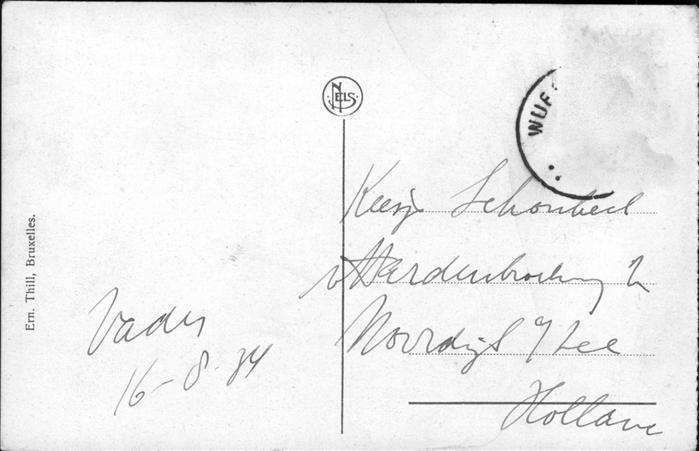 NELS
WUF
Keesje Schoubeek
v Hardenbroekweg 2
Noordwijk a/Zee
Holland
Vader
16-8-34
Ern. Thill, Bruxelles.